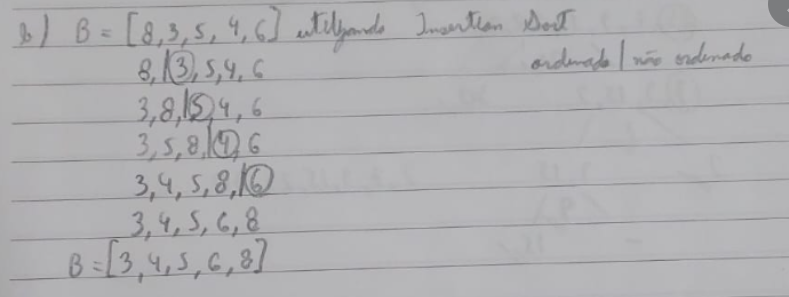 b) B = [8,3,5,4,6] utilizando Insertion Sort
8,|3,5,4,6 ordenado | não ordenado
3,8,|5,4,6
3,5,8,|4,6
3,4,5,8,|6
3,4,5,6,8
B = [3,4,5,6,8]